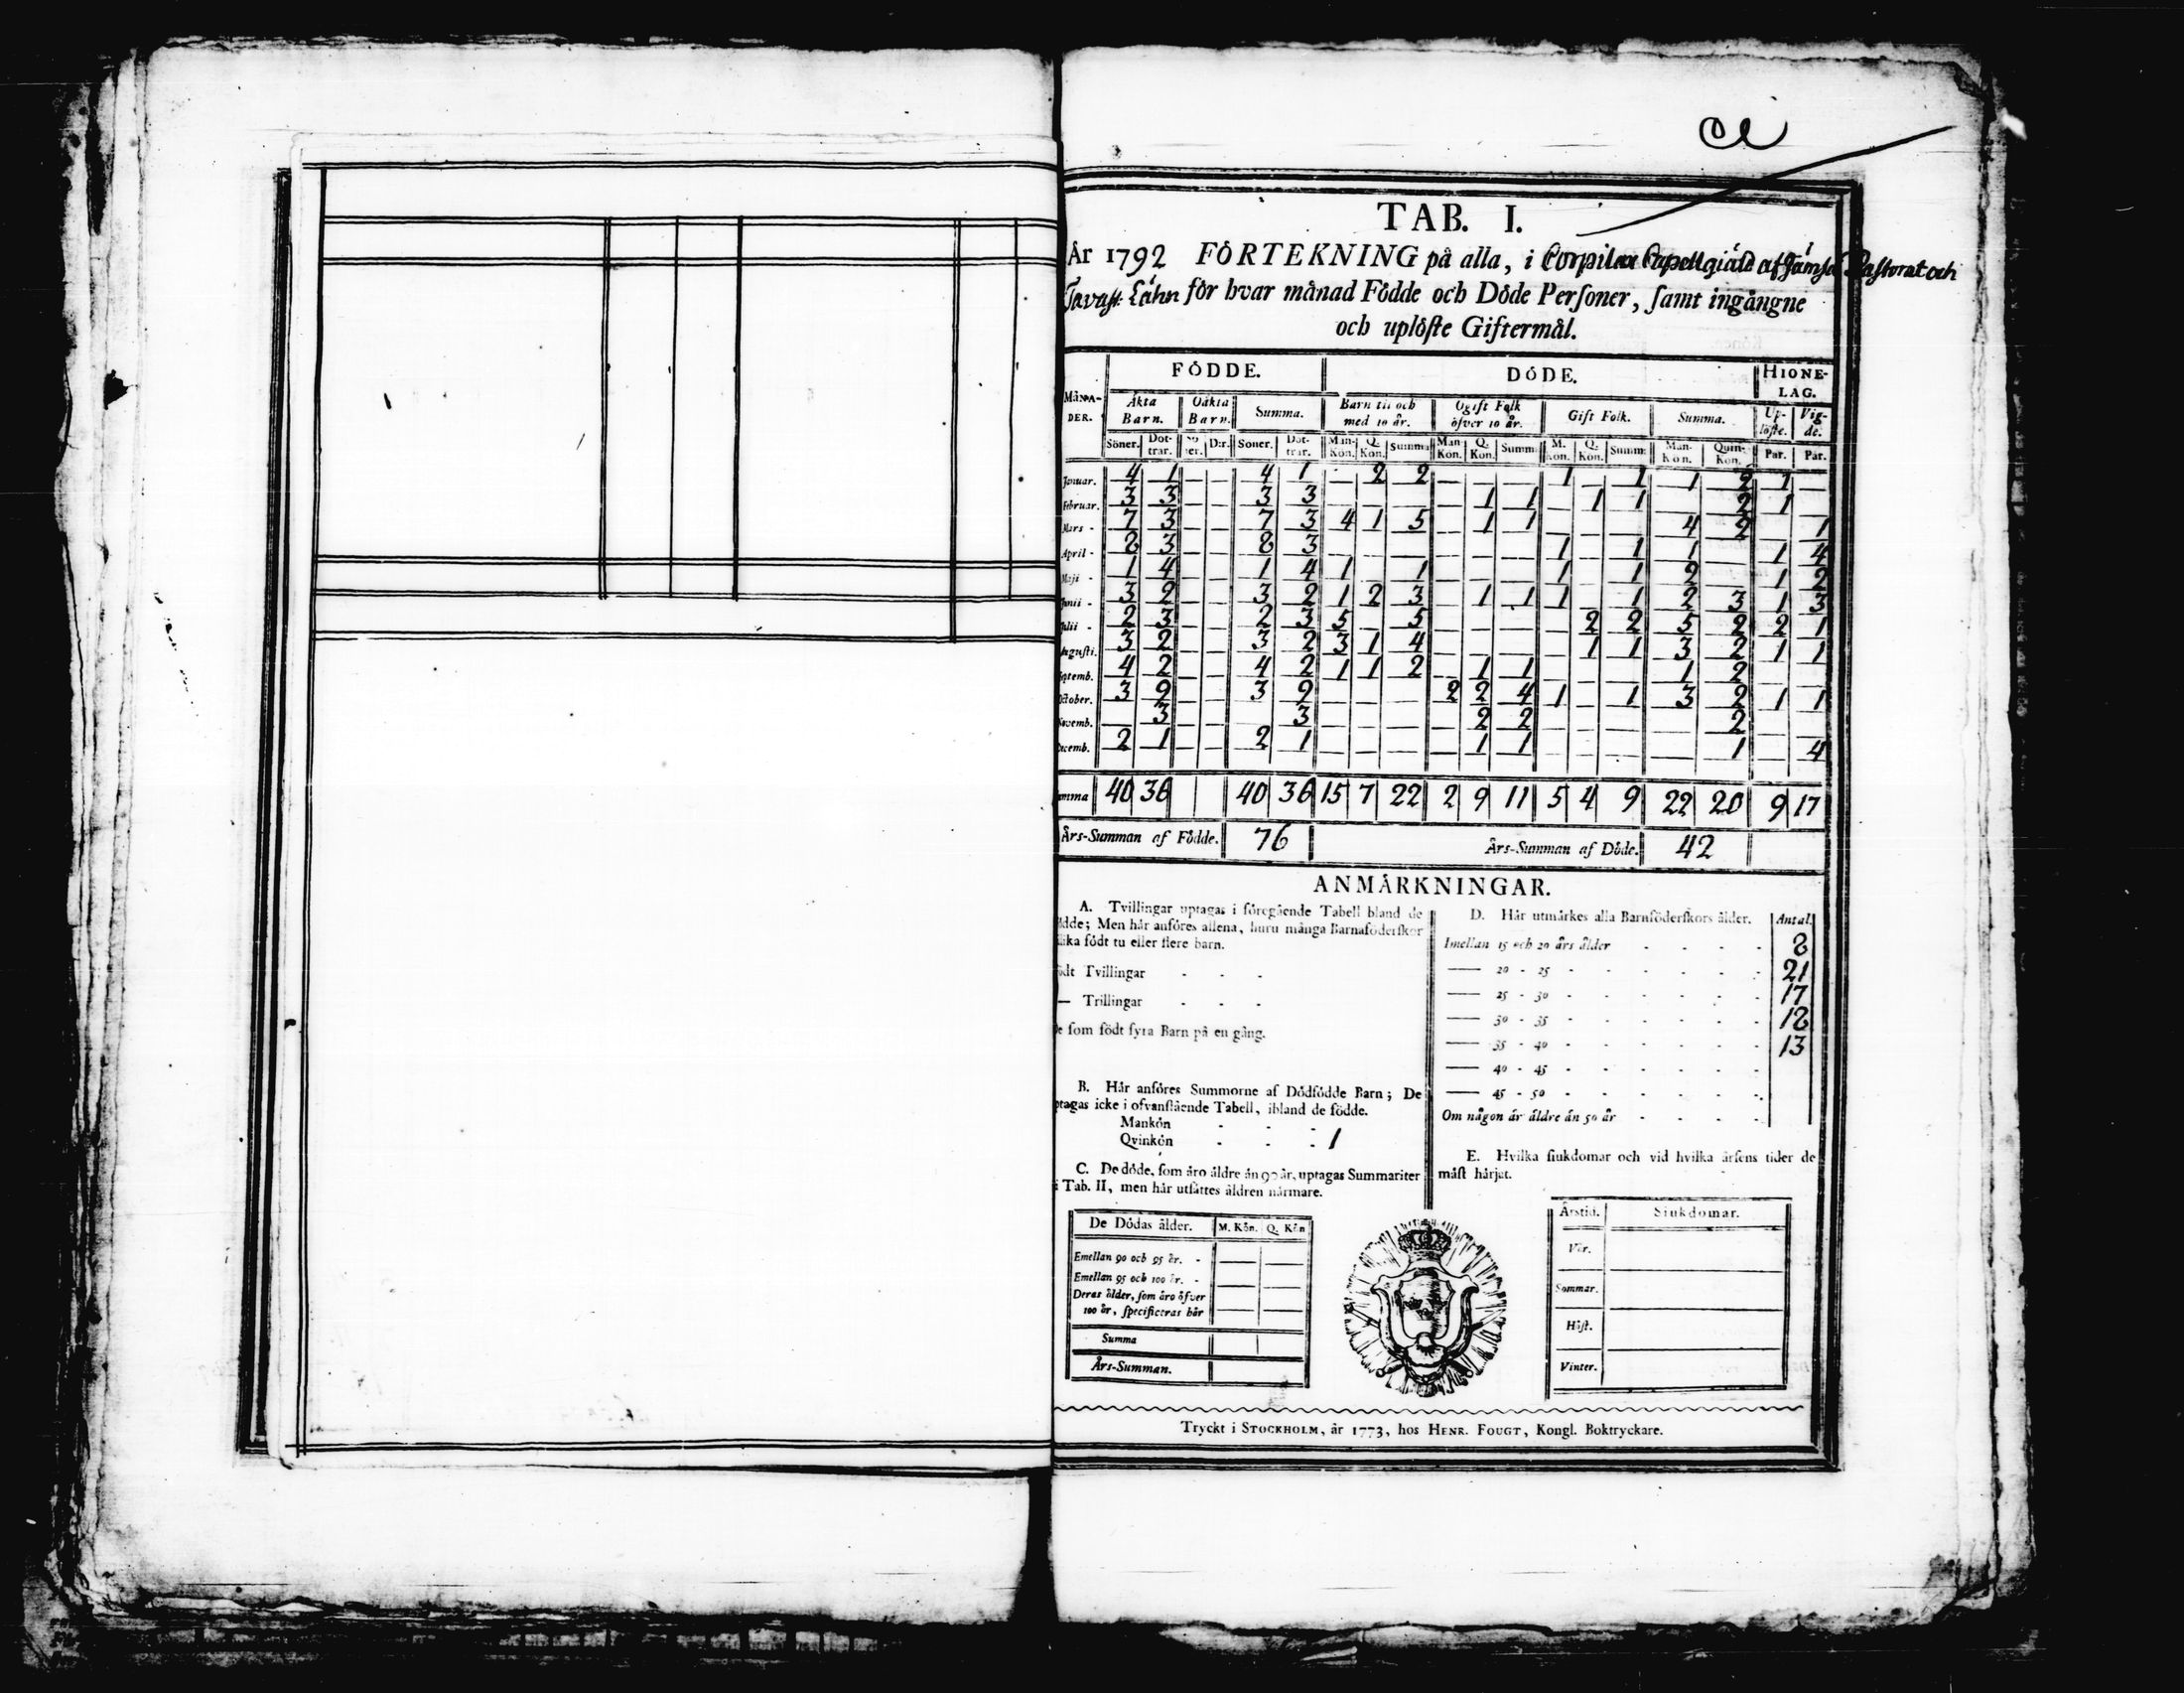 TAB. I.
År 1792 FÖRTEKNING på alla, i Corpilax Capellgiäld af Jämsä Pastorat och
Tavast. Lähn för hvar månad Födde och Döde Personer, samt ingångne
och uplöste Giftermål.
FÖDDE. DÖDE. HIONE-
LAG.
MÅNA-
DER. Äkta Barn. Oäkta Barn. Summa. Barn til och med 10 år. Ogift Folk öfver 10 år. Gift Folk. Summa. Up-löste. Vig-de.
Söner. Döt-trar. D:r. Söner. Döt-trar. Man-Kön. Q. Kön. Summ: Man Kön. Q. Kön. Summ: M. Kön. Q. Kön. Summ: Man-Kön. Quin-Kön. Par. Par.
Januar. 4 1 — — 4 1 — 2 2 — — — 1 — 1 1 2 1 —
Februar. 3 3 — — 3 3 — — — — 1 1 — 1 1 — 2 1
Mars - 7 3 — — 7 3 4 1 5 — 1 1 — — — 4 2 — 1
April - 8 3 — — 8 3 — — — — — — 1 — 1 1 — 1 4
Maji - 1 4 — — 1 4 1 — 1 — — — 1 — 1 2 — 1 2
Junii - 3 2 — — 3 2 1 2 3 — 1 1 1 — 1 2 3 1 3
Julii - 2 3 — — 2 3 5 — 5 — — — — 2 2 5 2 2 1
Augusti. 3 2 — — 3 2 3 1 4 — — — — 1 1 3 2 1 1
Septemb. 4 2 — — 4 2 1 1 2 — 1 1 — — — 1 2 — —
October. 3 9 — — 3 9 — — — 2 2 4 1 — 1 3 2 1 1
Novemb. — 3 — — — 3 — — — — 2 2 — — — — 2 — —
Decemb. 2 1 — — 2 1 — — — — 1 1 — — — — 1 — 4
mma 40 36 40 36 15 7 22 2 9 11 5 4 9 22 20 9 17
Års-Summan af Födde. 76 Års-Summan af Döde. 42
ANMÄRKNINGAR.
A. Tvillingar uptagas i föregående Tabell bland de
ödde; Men här anföres allena, huru många Barnaföderskor
lika födt tu eller flere barn.
ödt Tvillingar - - -
— Trillingar - - -
e som födt fyra Barn på en gång.
B. Här anföres Summorne af Dödfödde Barn; De
ptagas icke i ofvanstående Tabell, ibland de födde.
Mankön - - -
Qvinkön - - - 1
C. De döde, som äro äldre än 90 år, uptagas Summariter
i Tab. II, men här utsättes åldren närmare.
De Dödas ålder. M. Kön. Q. Kön
Emellan 90 och 95 år. - — —
Emellan 95 och 100 år. - — —
Deras ålder, som äro öfver — —
100 år, specificeras här — —
Summa
Års-Summan.
D. Här utmärkes alla Barnföderskors ålder. Antal.
Imellan 15 och 20 års ålder - - - - 8
— 20 - 25 - - - - - - 21
— 25 - 30 - - - - - - 17
— 30 - 35 - - - - - - 18
— 35 - 40 - - - - - - 13
— 40 - 45 - - - - - -
— 45 - 50 - - - - - -
Om någon är äldre än 50 år - - - -
E. Hvilka siukdomar och vid hvilka årsens tider de
mäst härjat.
Årstid. Siukdomar.
Vår.
Sommar.
Höst.
Vinter.
Tryckt i STOCKHOLM, år 1773, hos HENR. FOUGT, Kongl. Boktryckare.